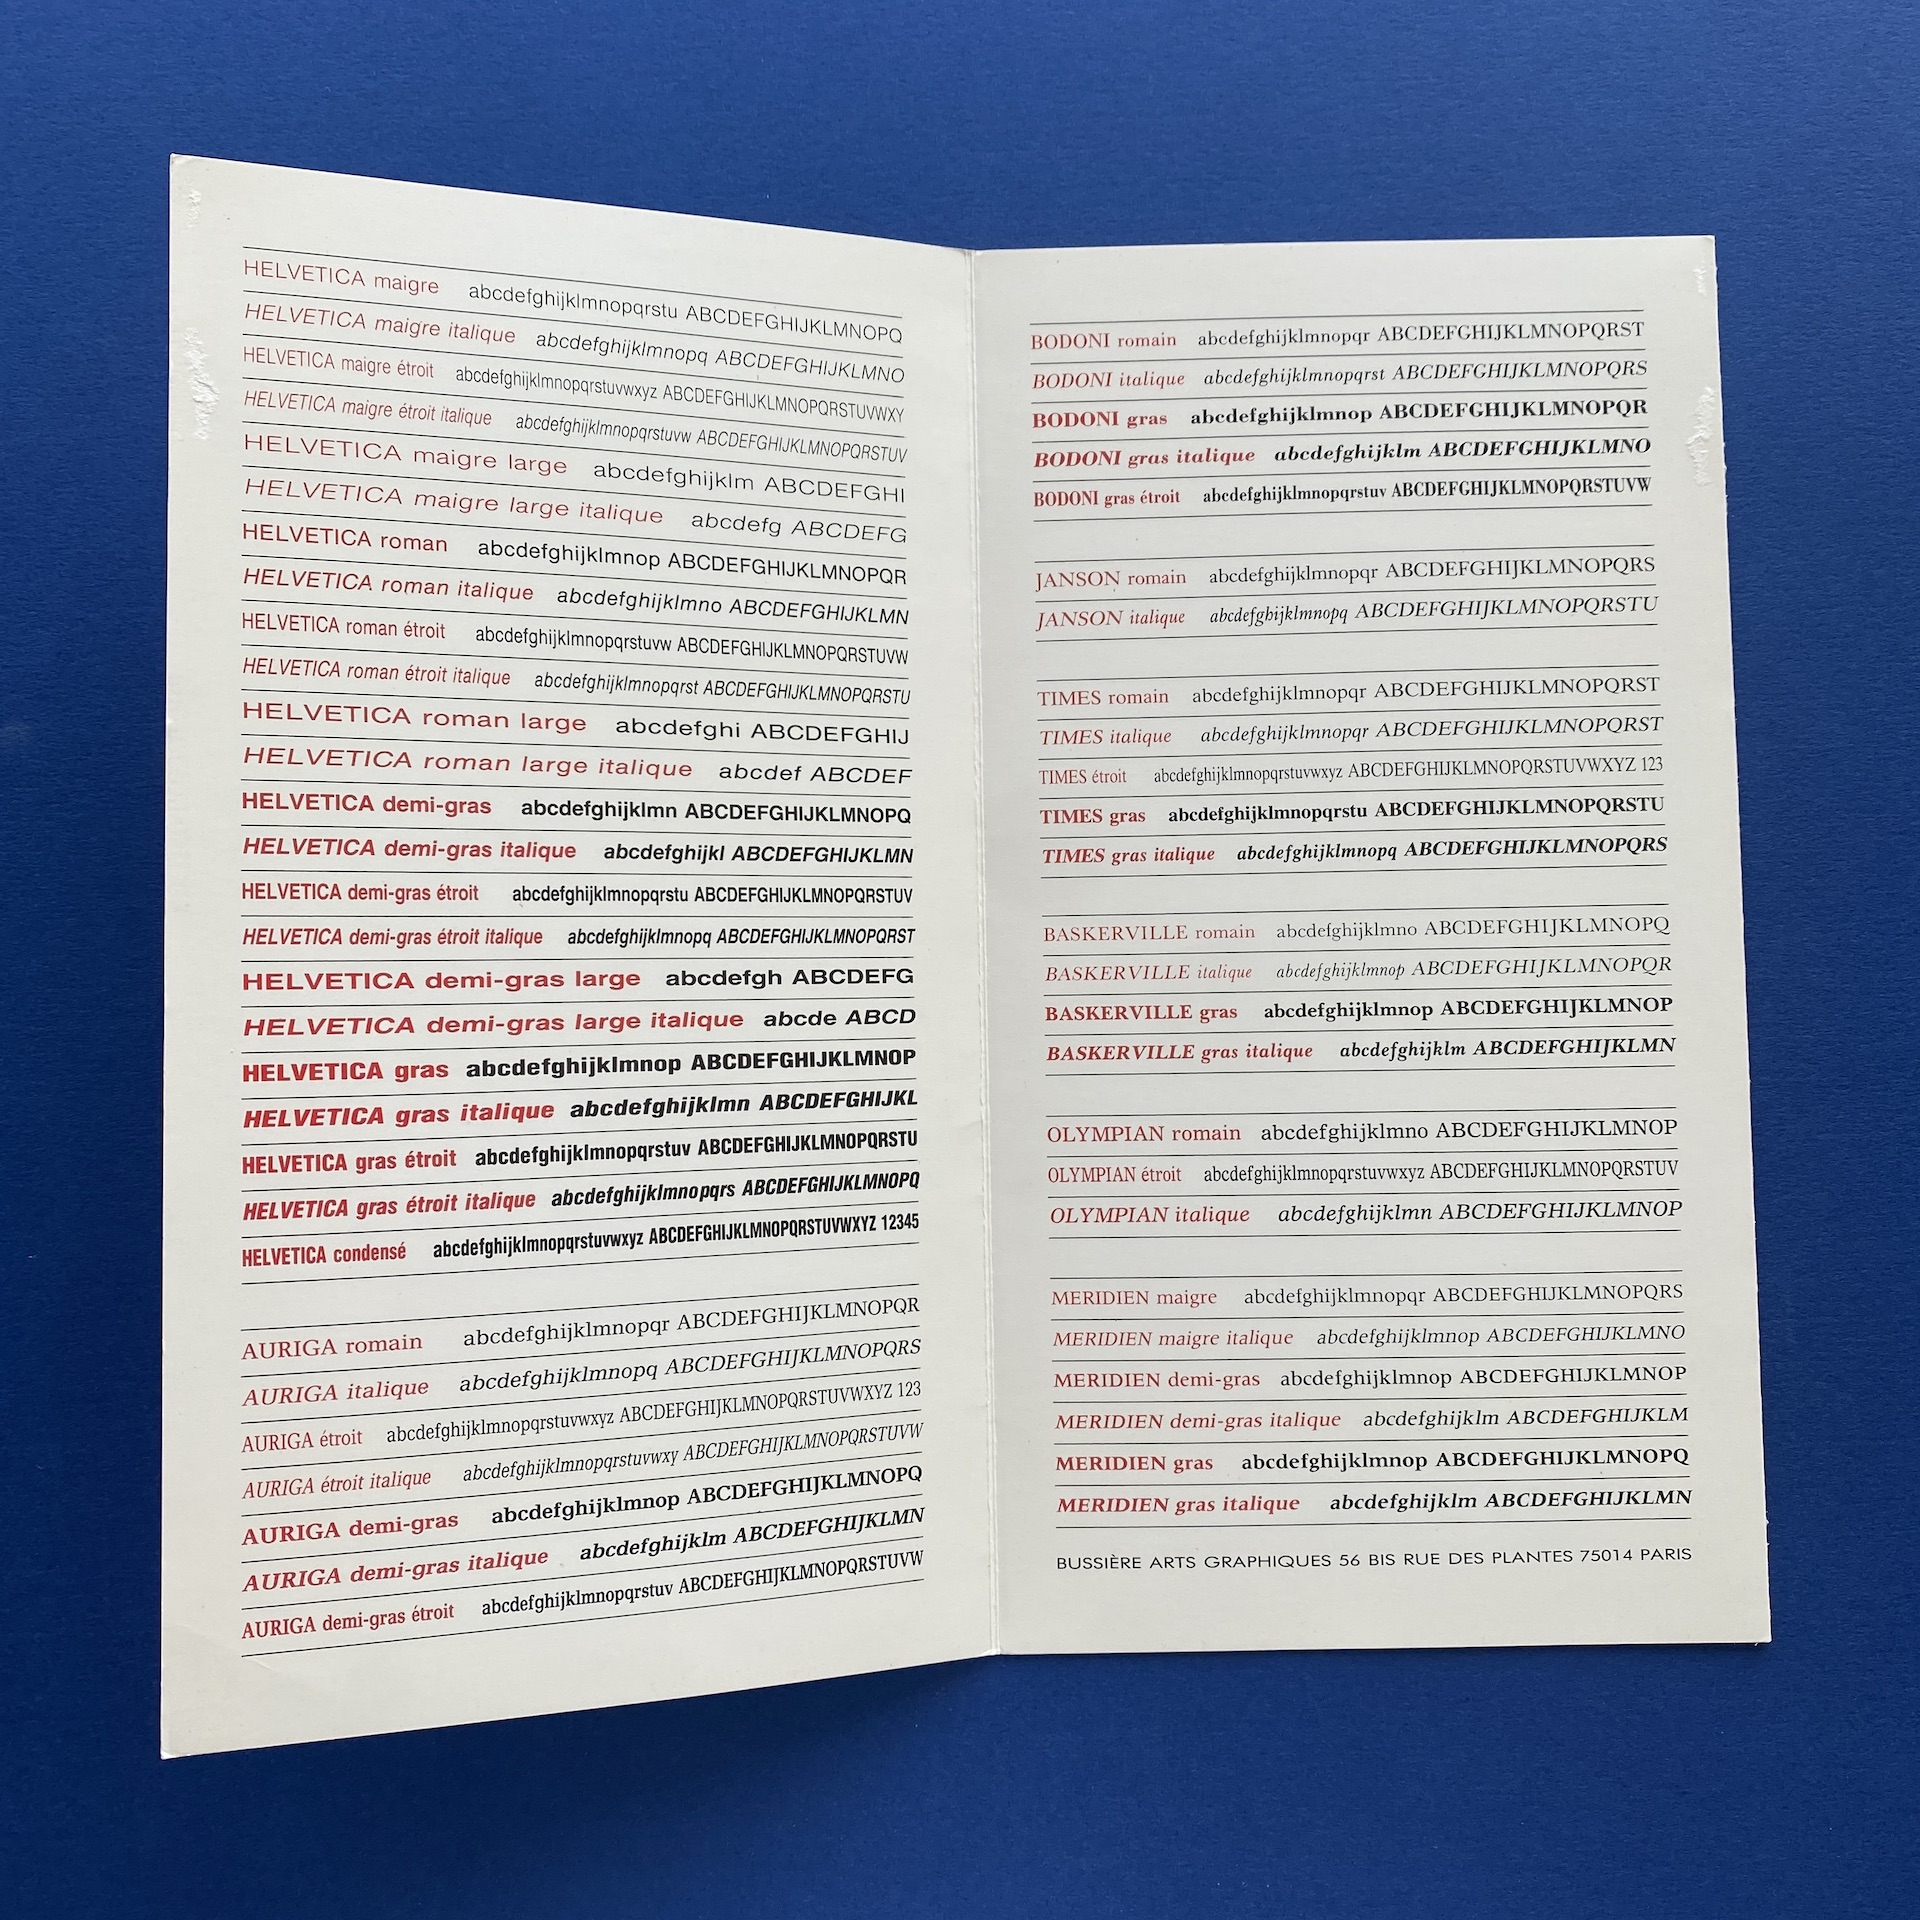 HELVETICA maigre abcdefghijklmnopqrstu ABCDEFGHIJKLMNOPQ
HELVETICA maigre italique abcdefghijklmnopq ABCDEFGHIJKLMNO
HELVETICA maigre étroit abcdefghijklmnopqrstuvwxyz ABCDEFGHIJKLMNOPQRSTUVWXY
HELVETICA maigre étroit italique abcdefghijklmnopqrstuvw ABCDEFGHIJKLMNOPQRSTUV
HELVETICA maigre large abcdefghijklm ABCDEFGHI
HELVETICA maigre large italique abcdefg ABCDEFG
HELVETICA roman abcdefghijklmnop ABCDEFGHIJKLMNOPQR
HELVETICA roman italique abcdefghijklmno ABCDEFGHIJKLMN
HELVETICA roman étroit abcdefghijklmnopqrstuvw ABCDEFGHIJKLMNOPQRSTUVW
HELVETICA roman étroit italique abcdefghijklmnopqrst ABCDEFGHIJKLMNOPQRSTU
HELVETICA roman large abcdefghi ABCDEFGHIJ
HELVETICA roman large italique abcdef ABCDEF
HELVETICA demi-gras abcdefghijklmn ABCDEFGHIJKLMNOPQ
HELVETICA demi-gras italique abcdefghijkl ABCDEFGHIJKLMN
HELVETICA demi-gras étroit abcdefghijklmnopqrstu ABCDEFGHIJKLMNOPQRSTUV
HELVETICA demi-gras étroit italique abcdefghijklmnopq ABCDEFGHIJKLMNOPQRST
HELVETICA demi-gras large abcdefgh ABCDEFG
HELVETICA demi-gras large italique abcde ABCD
HELVETICA gras abcdefghijklmnop ABCDEFGHIJKLMNOP
HELVETICA gras italique abcdefghijklmn ABCDEFGHIJKL
HELVETICA gras étroit abcdefghijklmnopqrstuv ABCDEFGHIJKLMNOPQRSTU
HELVETICA gras étroit italique abcdefghijklmnopqrs ABCDEFGHIJKLMNOPQ
HELVETICA condensé abcdefghijklmnopqrstuvwxyz ABCDEFGHIJKLMNOPQRSTUVWXYZ 12345
AURIGA romain abcdefghijklmnopqr ABCDEFGHIJKLMNOPQR
AURIGA italique abcdefghijklmnopq ABCDEFGHIJKLMNOPQRS
AURIGA étroit abcdefghijklmnopqrstuvwxyz ABCDEFGHIJKLMNOPQRSTUVWXYZ 123
AURIGA étroit italique abcdefghijklmnopqrstuvwxy ABCDEFGHIJKLMNOPQRSTUVW
AURIGA demi-gras abcdefghijklmnop ABCDEFGHIJKLMNOPQ
AURIGA demi-gras italique abcdefghijklm ABCDEFGHIJKLMN
AURIGA demi-gras étroit abcdefghijklmnopqrstuv ABCDEFGHIJKLMNOPQRSTUVW
BODONI romain abcdefghijklmnopqr ABCDEFGHIJKLMNOPQRST
BODONI italique abcdefghijklmnopqrst ABCDEFGHIJKLMNOPQRS
BODONI gras abcdefghijklmnop ABCDEFGHIJKLMNOPQR
BODONI gras italique abcdefghijklm ABCDEFGHIJKLMNO
BODONI gras étroit abcdefghijklmnopqrstuv ABCDEFGHIJKLMNOPQRSTUVW
JANSON romain abcdefghijklmnopqr ABCDEFGHIJKLMNOPQRS
JANSON italique abcdefghijklmnopq ABCDEFGHIJKLMNOPQRSTU
TIMES romain abcdefghijklmnopqr ABCDEFGHIJKLMNOPQRST
TIMES italique abcdefghijklmnopqr ABCDEFGHIJKLMNOPQRST
TIMES étroit abcdefghijklmnopqrstuvwxyz ABCDEFGHIJKLMNOPQRSTUVWXYZ 123
TIMES gras abcdefghijklmnopqrstu ABCDEFGHIJKLMNOPQRSTU
TIMES gras italique abcdefghijklmnopq ABCDEFGHIJKLMNOPQRS
BASKERVILLE romain abcdefghijklmno ABCDEFGHIJKLMNOPQ
BASKERVILLE italique abcdefghijklmnop ABCDEFGHIJKLMNOPQR
BASKERVILLE gras abcdefghijklmnop ABCDEFGHIJKLMNOP
BASKERVILLE gras italique abcdefghijklm ABCDEFGHIJKLMN
OLYMPIAN romain abcdefghijklmno ABCDEFGHIJKLMNOP
OLYMPIAN étroit abcdefghijklmnopqrstuvwxyz ABCDEFGHIJKLMNOPQRSTUV
OLYMPIAN italique abcdefghijklmn ABCDEFGHIJKLMNOP
MERIDIEN maigre abcdefghijklmnopqr ABCDEFGHIJKLMNOPQRS
MERIDIEN maigre italique abcdefghijklmnop ABCDEFGHIJKLMNO
MERIDIEN demi-gras abcdefghijklmnop ABCDEFGHIJKLMNOP
MERIDIEN demi-gras italique abcdefghijklm ABCDEFGHIJKLM
MERIDIEN gras abcdefghijklmnop ABCDEFGHIJKLMNOPQ
MERIDIEN gras italique abcdefghijklm ABCDEFGHIJKLMN
BUSSIÈRE ARTS GRAPHIQUES 56 BIS RUE DES PLANTES 75014 PARIS